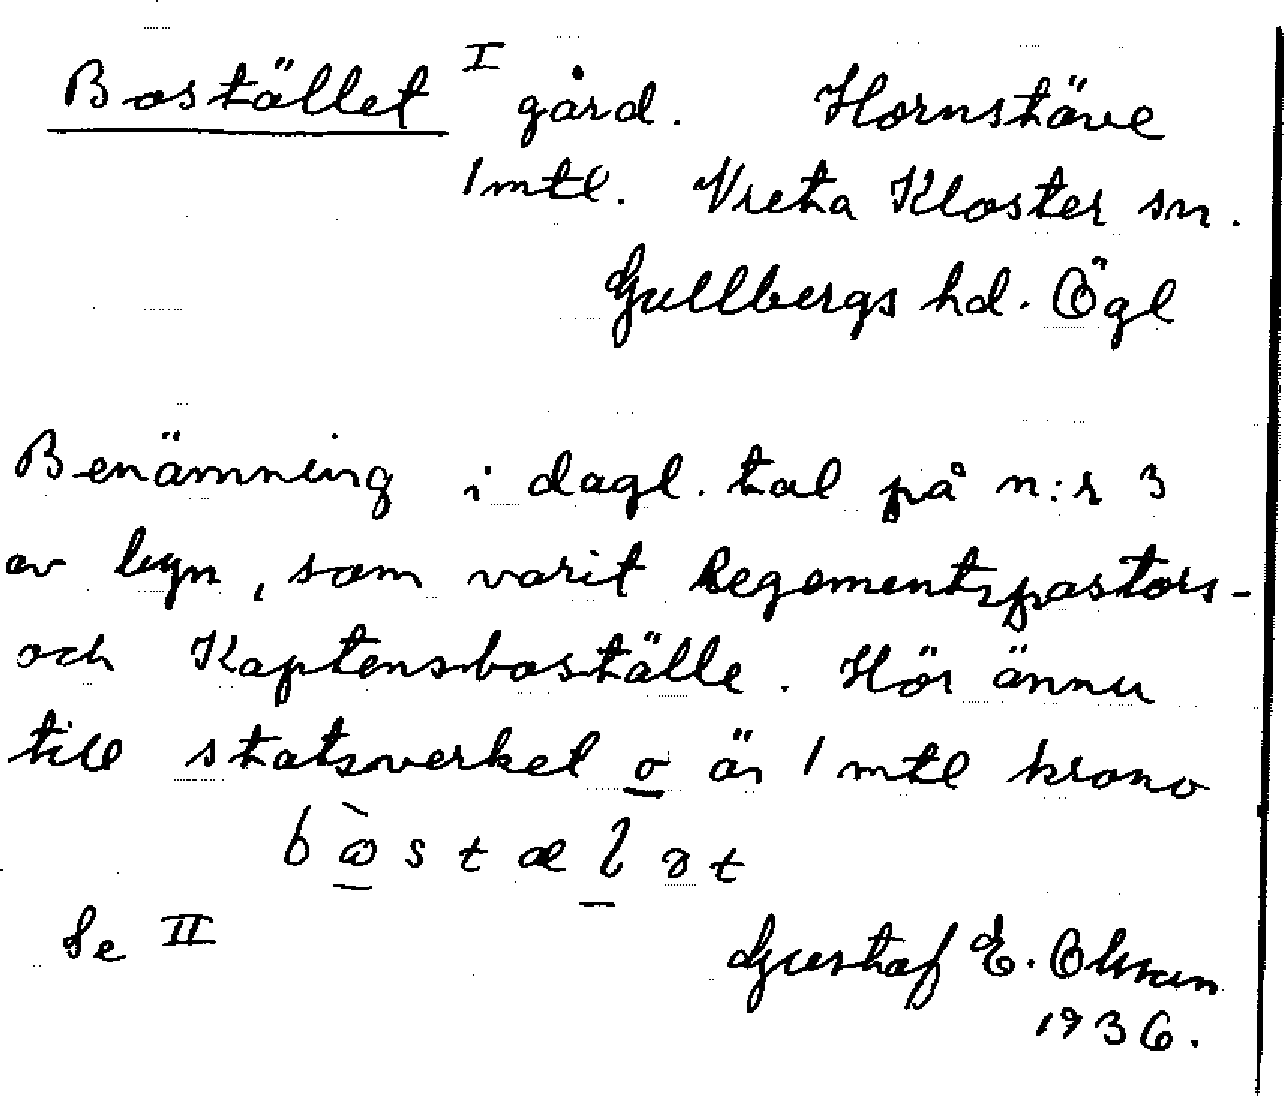 Bostället I gård. Hornstäve
1 mtl. Vreta Kloster sn.
Gullbergs hd. Ögl
Benämning i dagl. tal på n:r 3
av byn, som varit Regementspastors-
och Kaptensboställe. Hör ännu
till statsverket o är 1 mtl krono
Se II
Gustaf E.
1936.